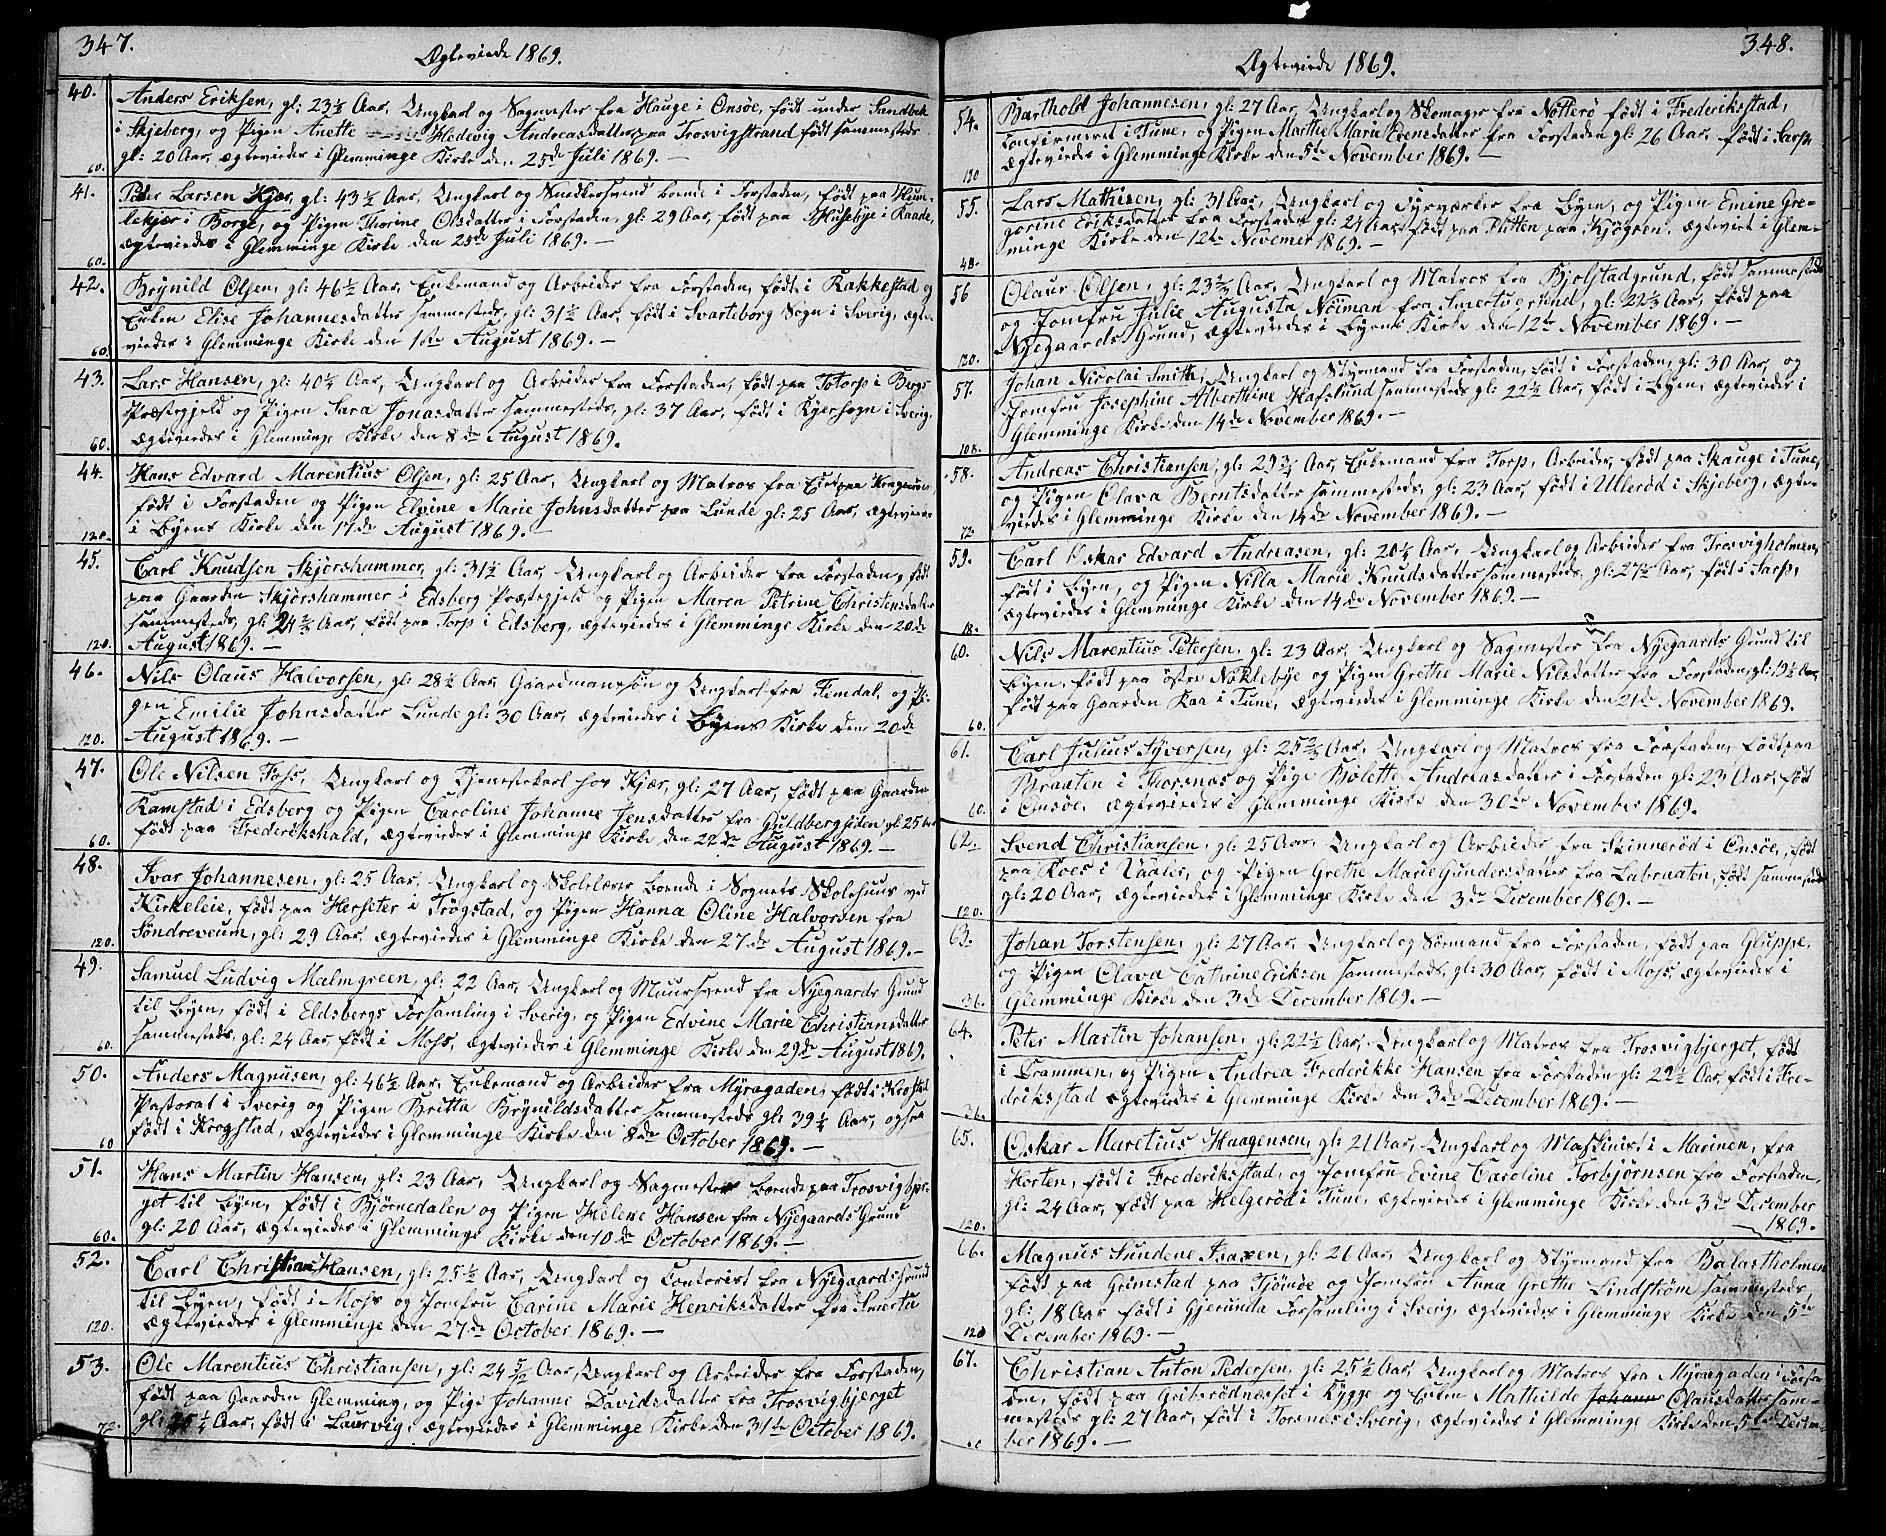 347.
Ægteviede 1869.
40.
Anders Eriksen, gl: 23½ Aar, Ungkarl og Sagmester fra Hauge i Onsöe, født under Sandbek
i Skjeberg, og Pigen Anette Hedevig Andreasdatter paa Trosvigstrand født sammesteds
gl: 20 Aar, ægtevieder i Glemminge Kirke den 25de Juli 1869. —
60.
41.
Peder Larsen Kjær, gl: 43½ Aar, Ungkarl og Snedkersvend boende i Forstaden, født paa Hum-
lekjær i Borge, og Pigen Thorine Olsdatter i Forstaden, gl: 29 Aar, født paa Huseby i Raade,
ægtevieder i Glemminge Kirke den 25de Juli 1869. —
60.
42.
Brynild Olsen, gl: 46½ Aar, Enkemand og Arbeider fra Forstaden, født i Rakkestad og
Enken Elise Johannesdatter sammesteds, gl: 31½ Aar, født i Svarteborg Sogn i Sverig, ægte-
vieder i Glemminge Kirke den 1ste August 1869. —
60.
43.
Lars Hansen, gl: 40½ Aar, Ungkarl og Arbeider fra Forstaden, født paa Totorp i Bergs
Præstegjeld og Pigen Sara Jonasdatter sammesteds, gl: 37 Aar, født i Kyersogn i Sverig,
ægtevieder i Glemminge Kirke den 8de August 1869.
60.
44.
Hans Edvard Marentius Olsen, gl: 25 Aar, Ungkarl og Matros fra paa Kragerøen,
født i Forstaden og Pigen Elvine Marie Johnsdatter paa Lunde gl: 25 Aar, ægtevieder
i Byens Kirke den 17de August 1869. —
120.
45.
Carl Knudsen Skjørshammer, gl: 31½ Aar, Ungkarl og Arbeider fra Forstaden, født
paa Gaarden Skjørshammer i Edsberg Præstegjeld og Pigen Maren Petrine Christensdatter
sammesteds, gl: 24⅔ Aar, født paa Torp i Edsberg, ægtevieder i Glemminge Kirke den 20de
August 1869. —
120.
46.
Nils Olaus Halvorsen, gl: 28½ Aar, Gaardmandssøn og Ungkarl fra Femdal, og Pi-
gen Emilie Johnsdatter Lunde gl: 30 Aar, ægtevieder i Byens Kirke den 20de
August 1869. —
120.
47.
Ole Nilsen Foss, Ungkarl og Tjenestekarl hos Kjær, gl: 27 Aar, født paa Gaarden
Kamstad i Edsberg og Pigen Caroline Johanne Jensdatter fra Guldbergsiden gl: 25 Aar
født paa Frederikshald, ægtevieder i Glemminge Kirke den 22de August 1869. —
60.
48.
Ivar Johannesen, gl: 25 Aar, Ungkarl og Skolelærer boende i Sognets Skolehuus ved
Kirkeleie, født paa Herseter i Trøgstad, og Pigen Hanna Oline Halvorsen fra
Söndreveum, gl: 29 Aar, ægtevieder i Glemminge Kirke den 27de August 1869. —
120.
49.
Samuel Ludvig Malmgreen, gl: 22 Aar, Ungkarl og Muursvend fra Nyegaards Grund
til Byen, født i Eldsbergs Forsamling i Sverig, og Pigen Edvine Marie Christiansdatter
sammesteds, gl: 24 Aar, født i Moss, ægtevieder i Glemminge Kirke den 29de August 1869.
60.
50.
Anders Magnusen, gl: 46½ Aar, Enkemand og Arbeider fra Myragaden, født i Krogstad
Pastorat i Sverig og Pigen Britta Brynildsdatter sammesteds gl: 39½ Aar, ogsaa
født i Krogstad, ægtevieder i Glemminge Kirke den 8de October 1869. —
60
51.
Hans Martin Hansen, gl: 23 Aar, Ungkarl og Sagmester boende paa Trosvigbjer-
get til Byen, født i Bjørnedalen og Pigen Helene Hansen fra Nyegaards Grund
gl: 20 Aar, ægtevieder i Glemminge Kirke den 10de October 1869. —
60.
52.
Carl Christian Hansen, gl: 25½ Aar, Ungkarl og Contorist fra Nyegaards Grund
til Byen, født i Moss og Jomfru Carine Marie Henriksdatter fra Smertu
ægtevieder i Glemminge den 27de October 1869. —
120.
53.
Ole Marentius Christiansen, gl: 24 5/12 Aar, Ungkarl og Arbeider fra Forstaden,
født paa Gaarden Glemming, og Pige Johanne Davidsdatter fra Trosvigbjerget
gl: 25½ Aar, født i Laurvig, ægtevieder i Glemminge Kirke den 31te October 1869.
72.
348.
Ægteviede 1869.
54.
Barthold Johannesen, gl: 27 Aar, Ungkarl og Skomager fra Nötterö født i Frederiksstad,
confirmeret i Tune, og Pigen Marthe Marie Evensdatter fra Forstaden gl: 26 Aar, født i Sarp
ægtevieder i Glemminge Kirke den 5te November 1869. —
120
55.
Lars Mathisen, gl: 31 Aar, Ungkarl og Fyrværker fra Byen, og Pigen Emine Gre-
gorine Eriksdatter fra Forstaden gl: 24 Aar født paa Pletten paa Kjøgøen, ægtevirt i Glem-
minge Kirke den 12te Novemer 1869. —
48.
56
Olaus Olsen, gl: 23¾ Aar, Ungkarl og Matros fra Bjølstadgrund, født sammesteds
og Jomfru Julie Augusta Nöiman fra Smertugrund, gl: 22⅔ Aar, født paa
Nyegaards Grund, ægtevieder i Byens Kirke den 12te November 1869. —
120.
57.
Johan Nicolai Smith, Ungkarl og Styrmand fra Forstaden, født i Forstaden, gl: 30 Aar, og
Jomfru Josephine Alberthine Hafslund sammesteds gl: 22½ Aar, født i Byen, ægtevieder i
Glemminge Kirke den 14de November 1869. —
108.
58.
Andreas Christiansen, gl: 29¾ Aar, Enkemand fra Torp, Arbeider, født paa Skauge i Tune,
og Pigen Olava Berntsdatter sammesteds, gl: 23 Aar, født i Ullerød i Skjeberg, ægte-
vieder i Glemminge Kirke den 14de November 1869. —
72
59.
Carl Oskar Edvard Andreasen, gl: 20½ Aar, Ungkarl og Arbeider fra Trosvigholmen,
født i Byen, og Pigen Nilla Marie Knudsdatter sammesteds, gl: 27½ Aar, født i Sarp,
ægtevieder i Glemminge Kirke den 14de November 1869. —
18.
60.
Nils Marentius Petersen, gl: 23 Aar, Ungkarl og Sagmester fra Nyegaards Grund til
Byen, født paa östre Nøkleby og Pigen Grethe Marie Nilsdatter fra Forstaden, gl: 19½ Aar,
født paa Gaarden Kaa i Tune, ægtevieder i Glemminge Kirke den 21de November 1869.
60.
61.
Carl Julius Syversen, gl: 25¾ Aar, Ungkarl og Matros fra Forstaden, født paa
Braaten i Thorsnæs og Pige Bolette Andreasdatter i Forstaden gl: 23 Aar, født
i Onsöe, ægtevieder i Glemminge Kirke den 30de November 1869.
60.
62.
Svend Christiansen, gl: 25 Aar, Ungkarl og Arbeider fra Skinnerød i Onsöe, født
paa Roes i Vaaler, og Pigen Grethe Marie Gundersdatter fra Labraaten, født sammesteds
gl: 20 Aar, ægtevieder i Glemminge Kirke den 3de December 1869. —
120.
63.
Johan Torstensen, gl: 27 Aar, Ungkarl og Sömand fra Forstaden, født paa Gluppe,
og Pigen Olava Cathrine Eriksen sammesteds, gl: 30 Aar, født i Moss, ægtevieder i
Glemminge Kirke den 3de December 1869. —
36.
64.
Peter Martin Johansen, gl: 22½ Aar, Ungkarl og Matros fra Trosvigbjerget, født
i Drammen, og Pigen Andrea Frederikke Hansen fra Forstaden gl: 22½ Aar, født i Fre-
driksstad ægtevieder i Glemminge Kirke den 3de December 1869. —
36.
65.
Oskar Maretius Haagensen, gl: 21 Aar, Ungkarl og Maskinist i Marinen, fra
Horten, født i Frederiksstad, og Jomfru Evine Caroline Torbjørnsen fra Forstaden,
gl: 24 Aar, født paa Helgerød i Tune, ægtevieder i Glemminge Kirke den 3de December
1869.
120.
66.
Magnus Sundene Isaxen, gl: 26 Aar, Ungkarl og Styrmand fra Balastholmen
født paa Grimstad paa Tjömöe og Jomfru Anna Grethe Lindström sammesteds
gl: 18 Aar født i Gjerunda Forsamling i Sverig, ægtevieder i Glemminge Kirke den 5te
December 1869. —
120
67.
Christian Anton Pedersen, gl: 25½ Aar, Ungkarl og Matros fra Myragaden i Forsta-
den, født paa Gribsrødnesset i Rygge og Enken Mathilde Johanne Olausdatter sam-
mesteds gl: 27 Aar, født i Torsnes i Sverig, ægtevieder i Glemminge Kirke den 5te Decem-
ber 1869. —
60